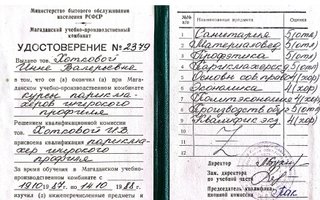 Министерство бытового обслуживания
населения РСФСР
Магаданский учебно-производственный
комбинат
УДОСТОВЕРЕНИЕ № 2349
Выдано тов. Хотковой
Инне Валерьевне
в том, что он (а) окончил (а) при Мага-
данском учебно-производственном комбинате
курсы парикма-
херов широкого
профиля
Решением квалификационной комиссии
тов. Хотковой И.В.
присвоена квалификация парикмахер широкого
профиля
За время обучения в Магаданском учебно-
производственном комбинате с
19.10 1987 г. по 14.10 1988 г.
изучил (а) нижеперечисленные предметы и
№№ п/п
Наименование предметов
Оценка
1 Санитария 5(отл)
2 Материаловед 5(отл)
3 5(отл)
4 5(отл)
5 Основы сов. права 4(хор)
6 Экономика 4(хор)
7 Политэкономия 4(хор)
8 Производств. обуч 5(отл)
9 4(хор)
10
11
12
Директор
Зам. директора
по учебной части
Председатель квалифика-
ционной комиссии